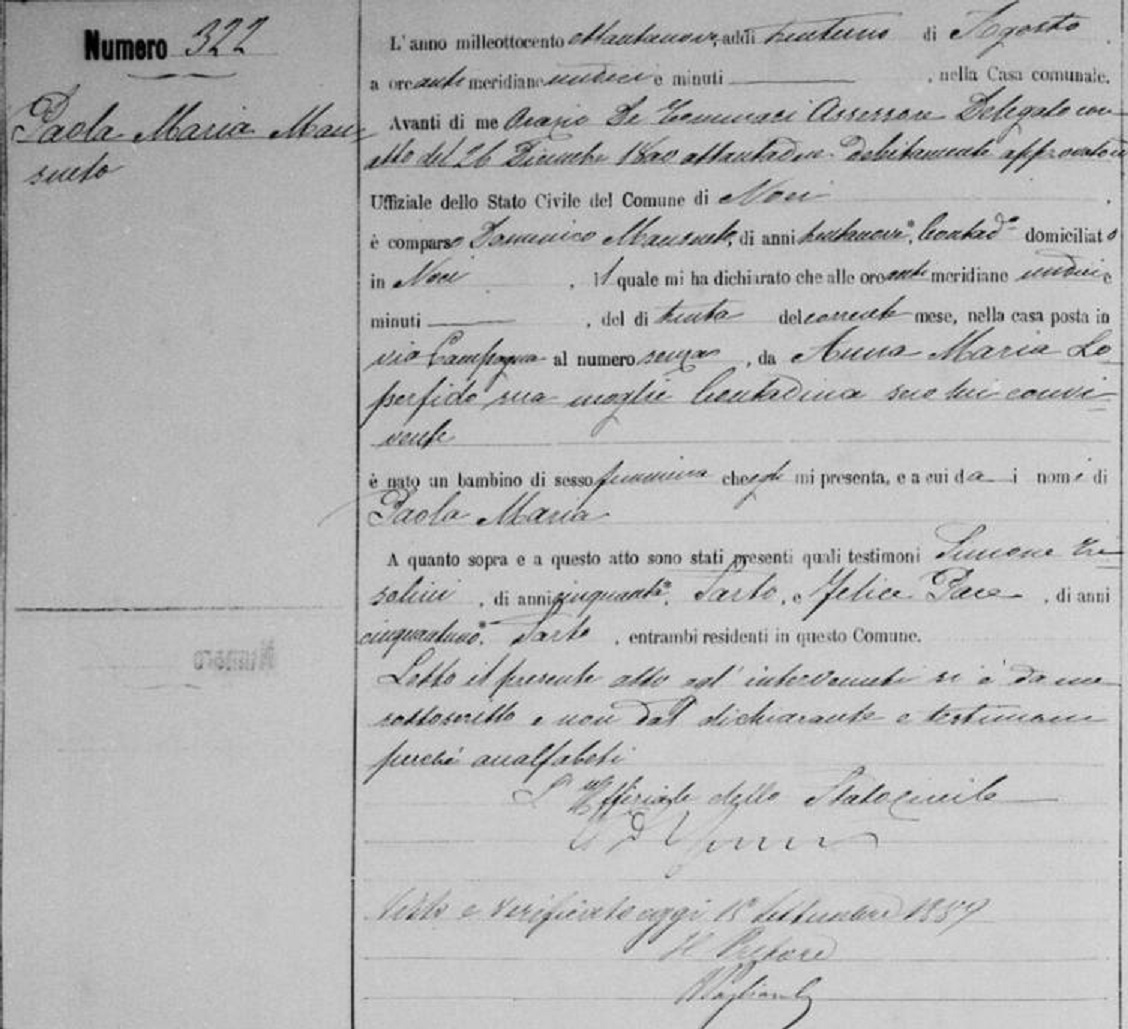 Numero 322
Paola Maria Man
sueto
L'anno milleottocento ottantanove, addi trentuno di Agosto
a ore ante meridiane undici e minuti , nella Casa comunale.
Avanti di me Orazio De Tommasi Assessore Delegato con
atto del 26 Dicembre 18 ottantadue debitamente approvato
Uffiziale dello Stato Civile del Comune di Noci
è comparso Domenico Mansueto, di anni trentanove, Contadº domiciliato
in Noci , il quale mi ha dichiarato che alle ore ante meridiane undici e
minuti , del di trenta del corrente mese, nella casa posta in
via Campagna al numero senza , da Anna Maria Lo
perfido sua moglie Contadina seco lui convi-
vente
è nato un bambino di sesso femminina che egli mi presenta, e a cui da i nomi di
Paola Maria
A quanto sopra e a questo atto sono stati presenti quali testimoni Simone
, di anni cinquanta, Sarto, e Felice Pace , di anni
cinquantuno, Sarto , entrambi residenti in questo Comune.
Letto il presente atto agl' intervenuti si è da me
sottoscritto e non dal dichiarante e testimoni
perché analfabeti
L'Uffiziale dello Stato Civile
Visto e verificato oggi 18 Settembre 1889
Il Pretore
Numero